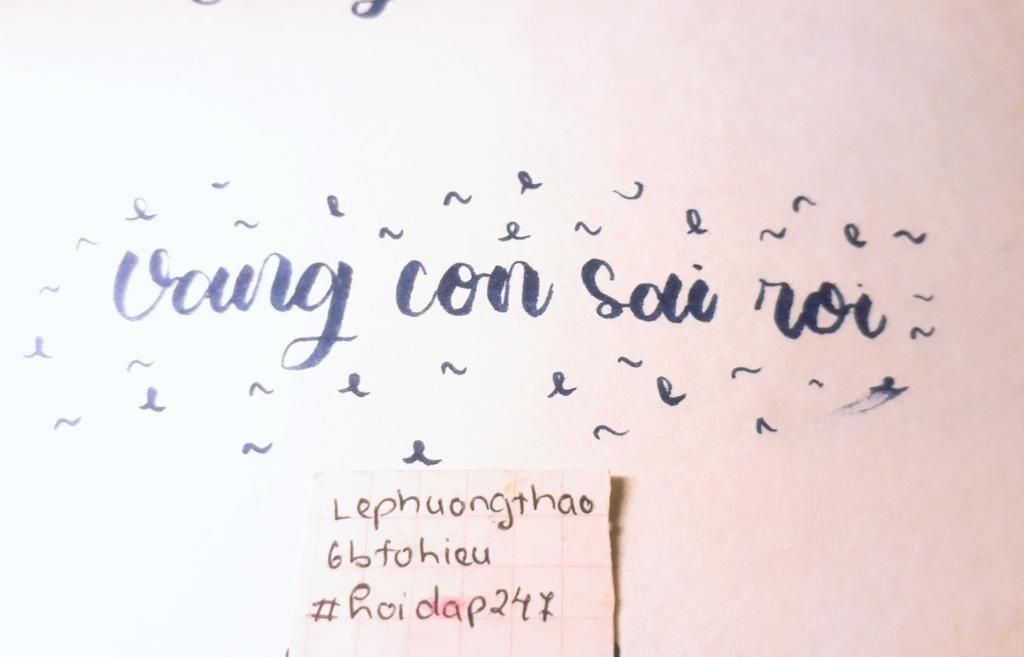 vang con sai roi
Lephuongthao
6btohieu
#hoidap247